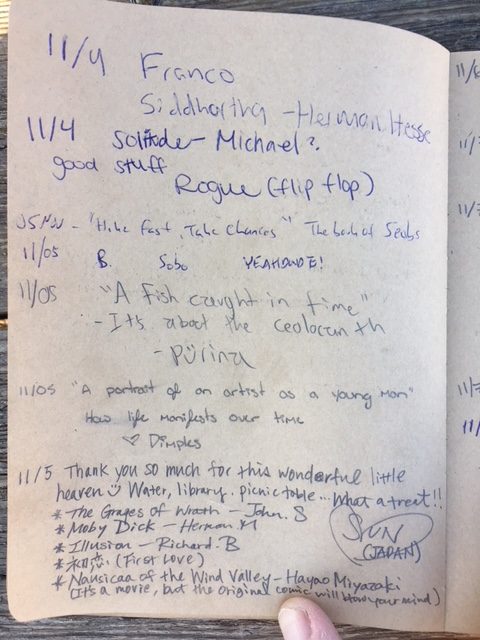 11/4 Franco
Siddhartha - Herman Hesse
11/4 Solitude - Michael ?.
good stuff
Rogue (flip flop)
05 Nov - "Hike Fast, Take Chances" The book of
11/05 B. Sobo
11/05 "A fish caught in time"
- It's about the ceolocanth
- Pürina
11/05 "A portrait of an artist as a young man"
How life manifests over time
♡ Dimples
11/5 Thank you so much for this wonderful little
heaven ☺ Water, library. picnic table... What a treat!!
* The Grapes of Wrath - John. S
* Moby Dick - Herman M
* Illusion - Richard. B
SHUN
(JAPAN)
* 初恋 (First Love)
* Nausicaa of the Wind Valley - Hayao Miyazaki
(It's a movie, but the original comic will blow your mind)
11/
11/
11/
11/
11/